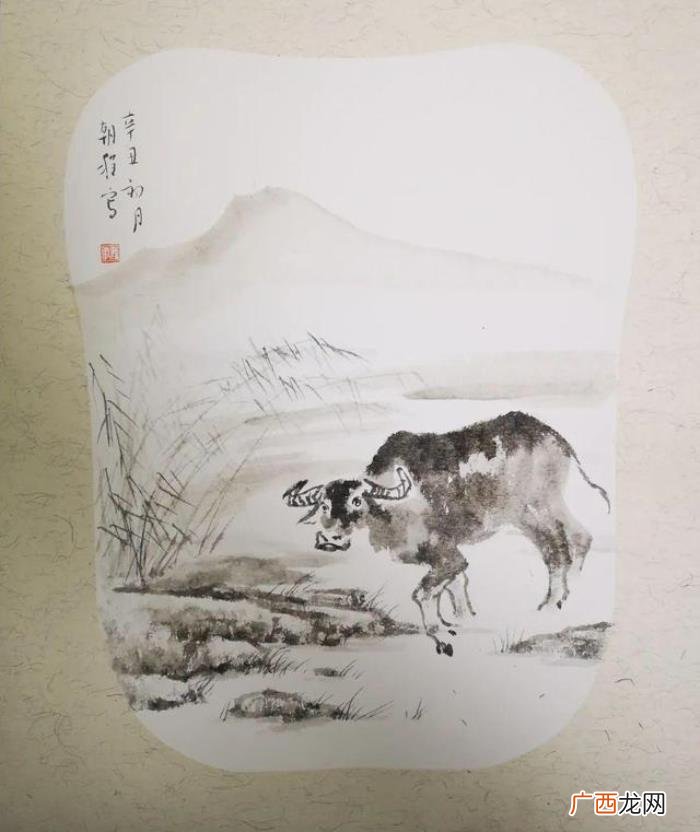 辛丑初月
朝程写
广西龙网